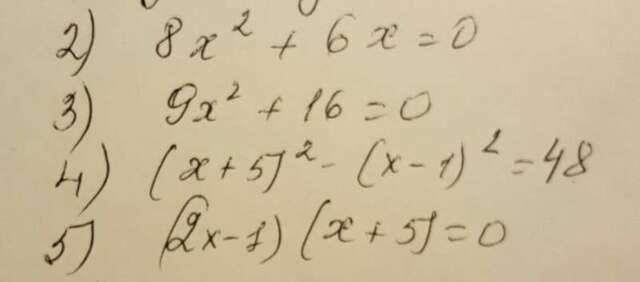 2) 8x² + 6x = 0
3) 9x² + 16 = 0
4) (x + 5)² - (x - 1)² = 48
5) (2x - 1) (x + 5) = 0